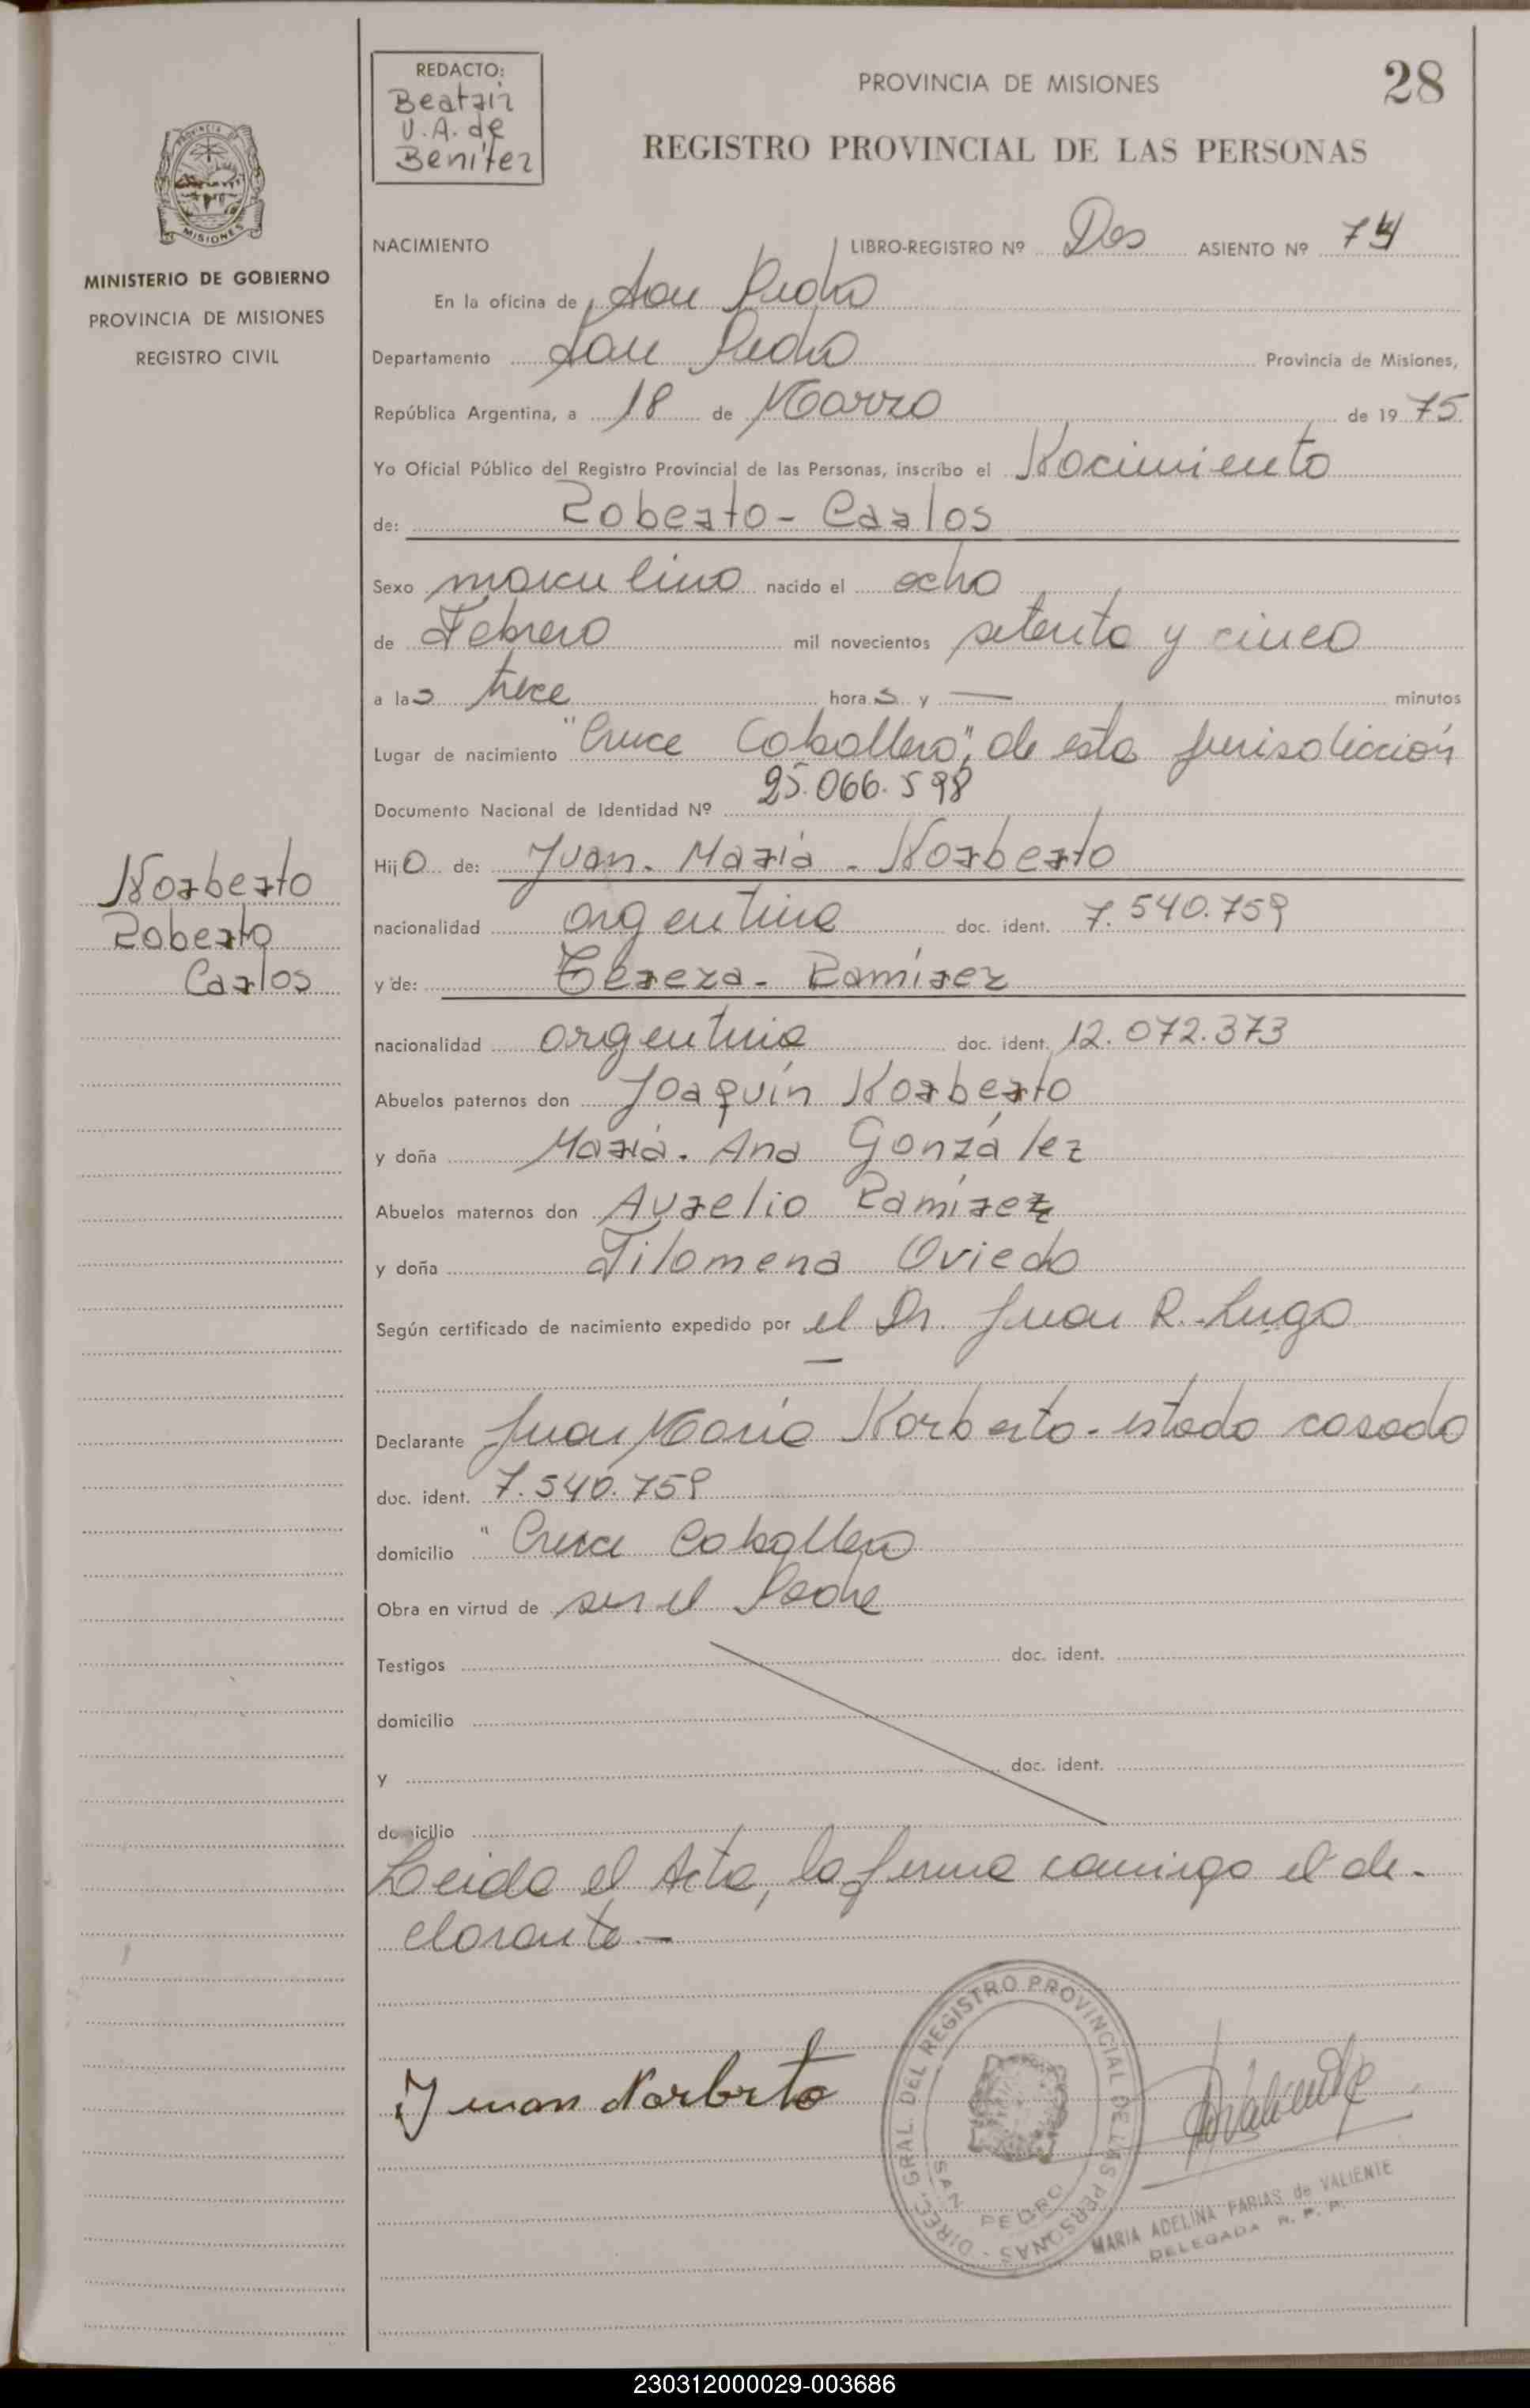 REDACTO:
Beatriz
V. A. de
Benítez
PROVINCIA DE MISIONES
28
REGISTRO PROVINCIAL DE LAS PERSONAS
MISIONES
MINISTERIO DE GOBIERNO
PROVINCIA DE MISIONES
REGISTRO CIVIL
NACIMIENTO LIBRO-REGISTRO Nº Dos ASIENTO Nº 74
En la oficina de San Pedro
Departamento San Pedro Provincia de Misiones,
República Argentina, a 18 de Marzo de 1975
Yo Oficial Público del Registro Provincial de las Personas, inscribo el Nacimiento
de: Roberto - Carlos
Sexo masculino nacido el ocho
de Febrero mil novecientos setenta y cinco
a las trece horas y — minutos
Lugar de nacimiento "Cruce Caballero", de esta jurisdicción
Documento Nacional de Identidad Nº 25.066.598
Hijo de: Juan - María - Norberto
Norberto
Roberto
Carlos
nacionalidad argentina doc. ident. 7.540.759
y de: Tereza - Ramírez
nacionalidad argentina doc. ident. 12.072.373
Abuelos paternos don Joaquín Norberto
y doña María - Ana González
Abuelos maternos don Aurelio Ramírez
y doña Filomena Oviedo
Según certificado de nacimiento expedido por el Dr. Juan R. Lugo
—
Declarante Juan María Norberto - estado casado
doc. ident. 7.540.759
domicilio "Cruce Caballero
Obra en virtud de ser el Padre
Testigos doc. ident.
domicilio
y doc. ident.
domicilio
Leida el Acta, la firma conmigo el de-
clarante -
Juan Norberto
DIREC. GRAL. DEL REGISTRO PROVINCIAL DE LAS PERSONAS -
SAN PEDRO
MARIA ADELINA FARIAS de VALIENTE
DELEGADA R. P. P.
230312000029-003686